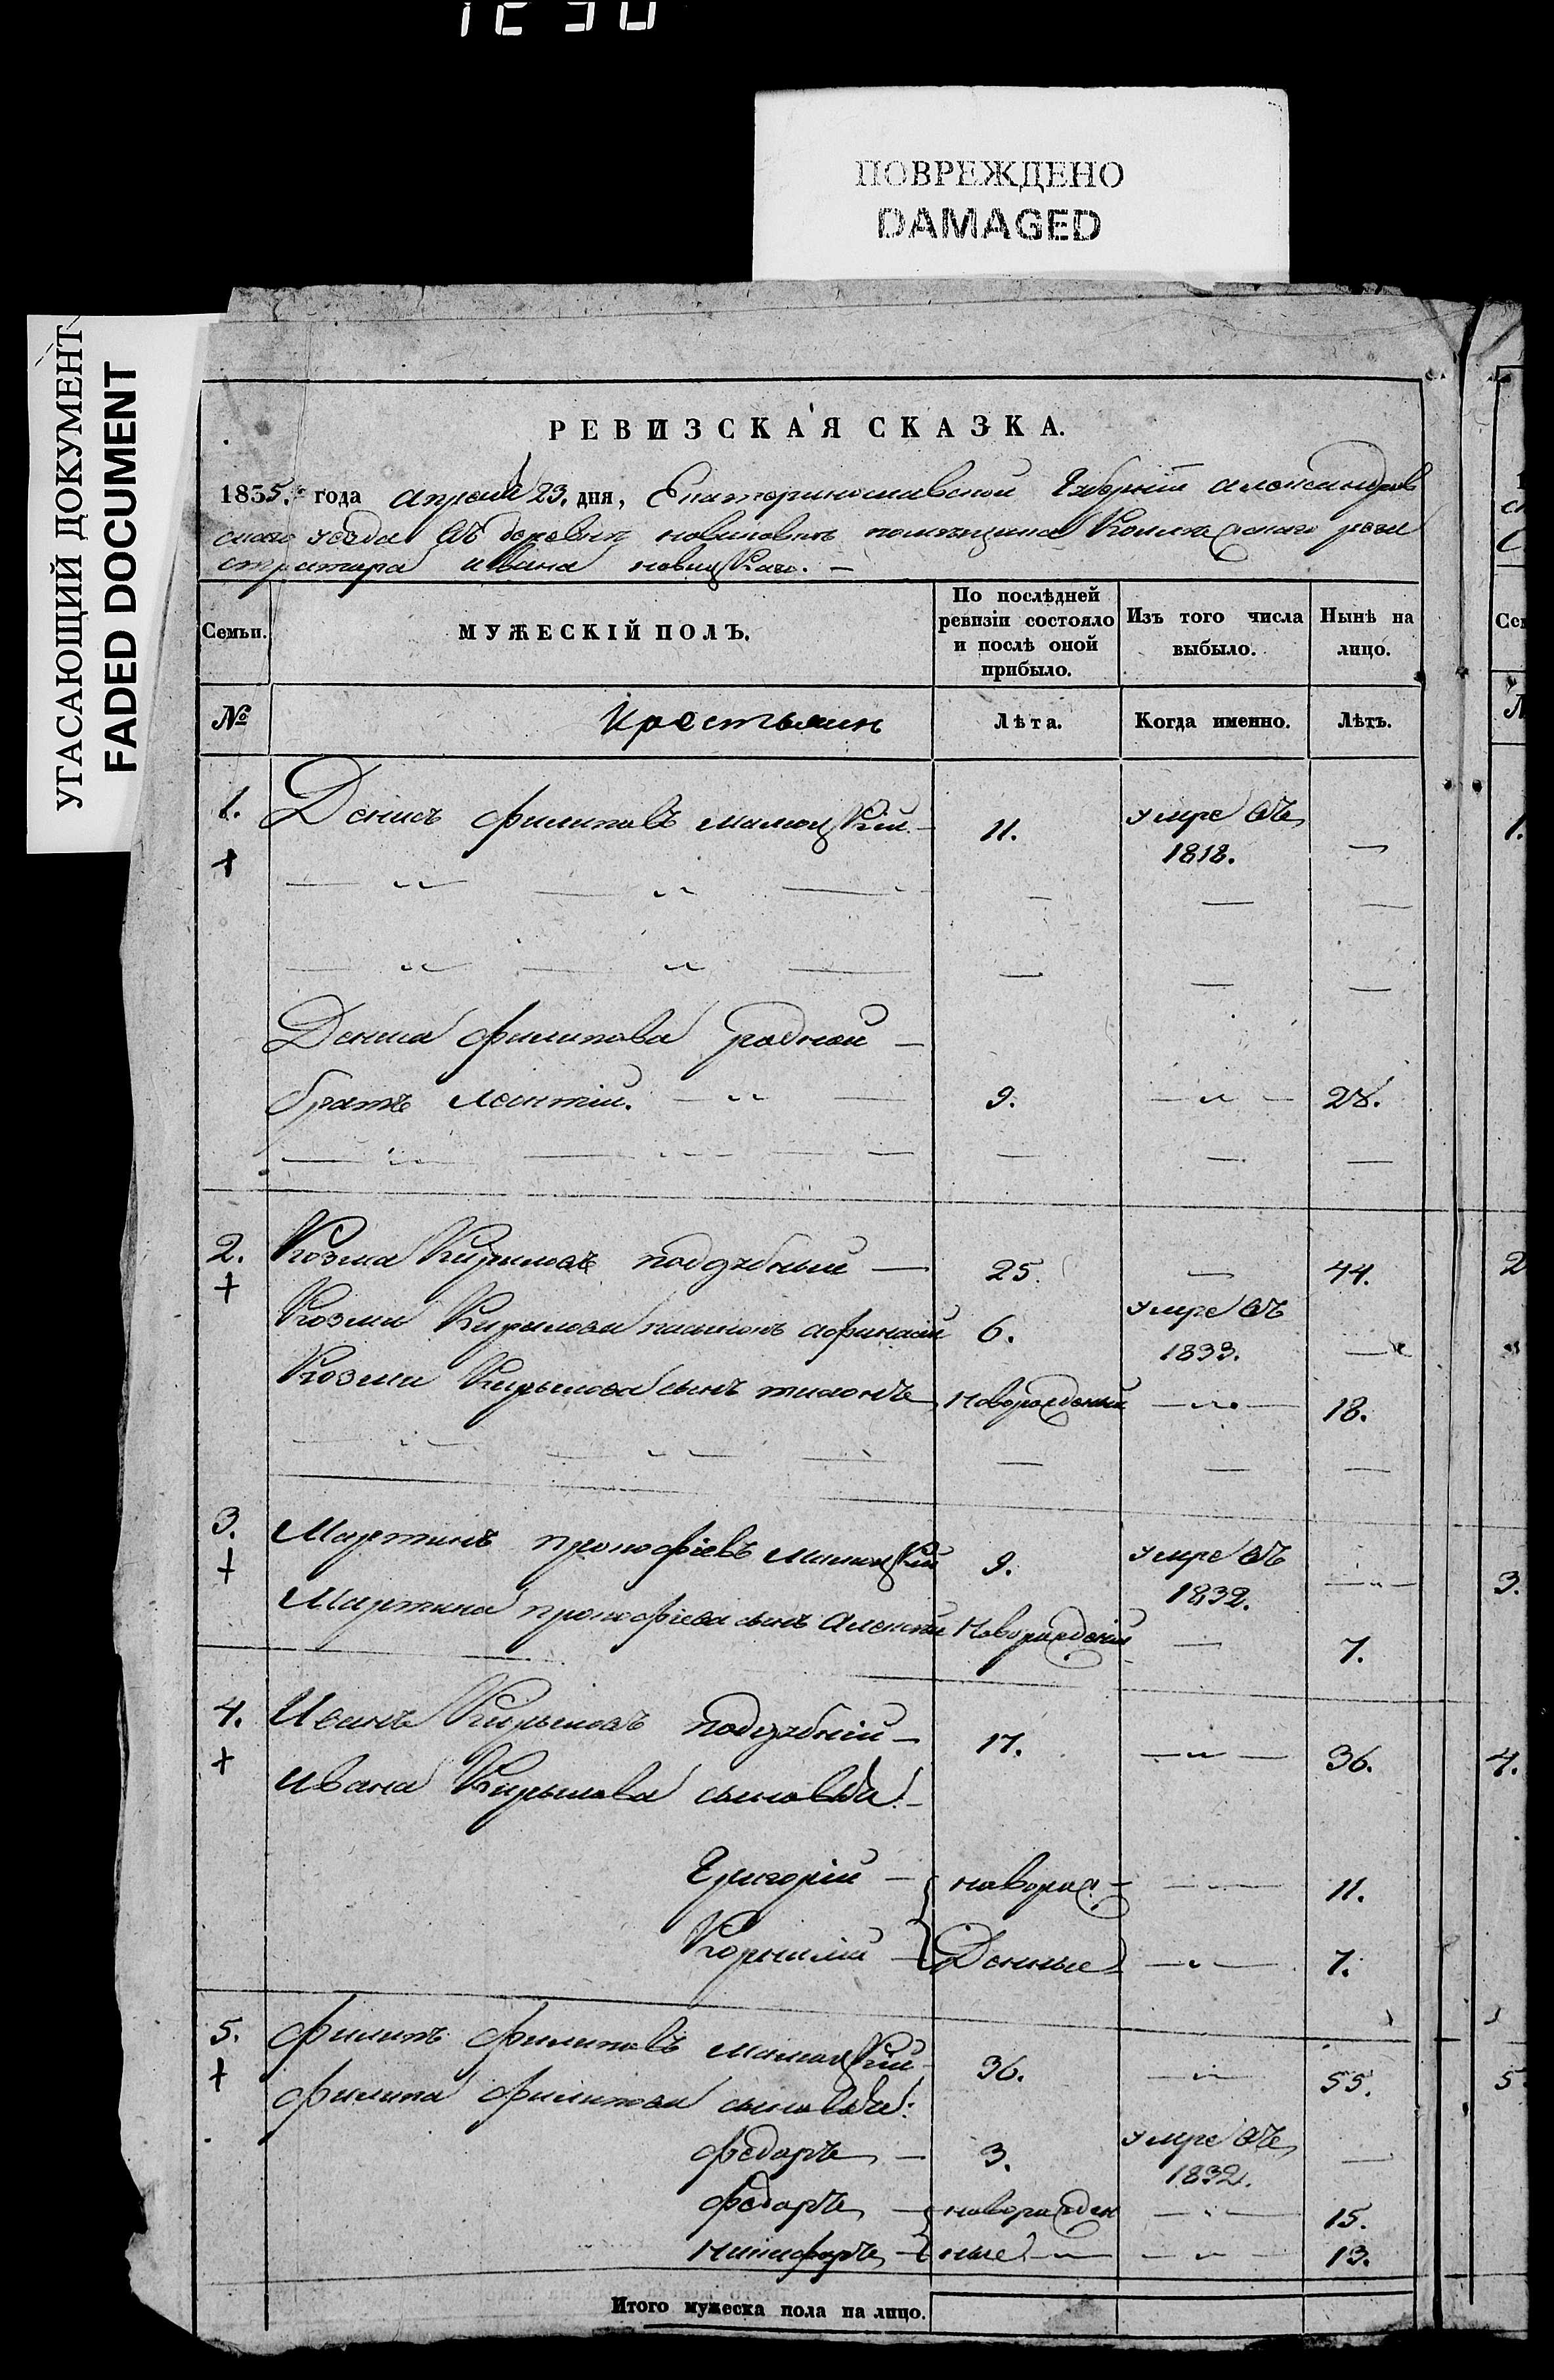 1290
ПОВРЕЖДЕНО
DAMAGED
УГАСАЮЩИЙ ДОКУМЕНТ
FADED DOCUMENT
РЕВИЗСКАЯ СКАЗКА.
1835. года апреля 23. дня, Екатеринославской Губерніи александров
скаго уезда въ деревни новиковки помѣщика Колежскаго реги
стратора ивана новицкаго. —
Семьи. МУЖЕСКІЙ ПОЛЪ. По послѣдней ревизіи состояло и послѣ оной прибыло. Изъ того числа выбыло. Нынѣ на лицо.
№ крестьянъ Лѣта. Когда именно. Лѣтъ.
1. Денисъ филиповъ 11. умре въ 1818. —
Дениса филипова родной —
братъ леонтій. 9. — „ — 28.
2. Козма Кириловъ поддубный — 25. — 44.
Козми Кирилова афанасій 6. умре въ 1833. —
Козми Кирилова сынъ тихонъ новорожденый — „ — 18.
3. Мартинъ прокофіевъ 9. умре въ 1832. — „ —
Мартина прокофіева сынъ алексей Новорожденій — 7.
4. Иванъ Кириловъ поддубній — 17. — „ — 36.
ивана Кирилова сыновья: —
Григорій — новорож- — 11.
Корнилій — Денные — „ — 7.
5. филипъ филиповъ 36. — „ — 55.
филипа филипова сыновья:
федоръ — 3. умре въ 1832. —
федоръ — новорожден — „ — 15.
никифоръ — ные — — „ — 13.
Итого мужеска пола на лицо.